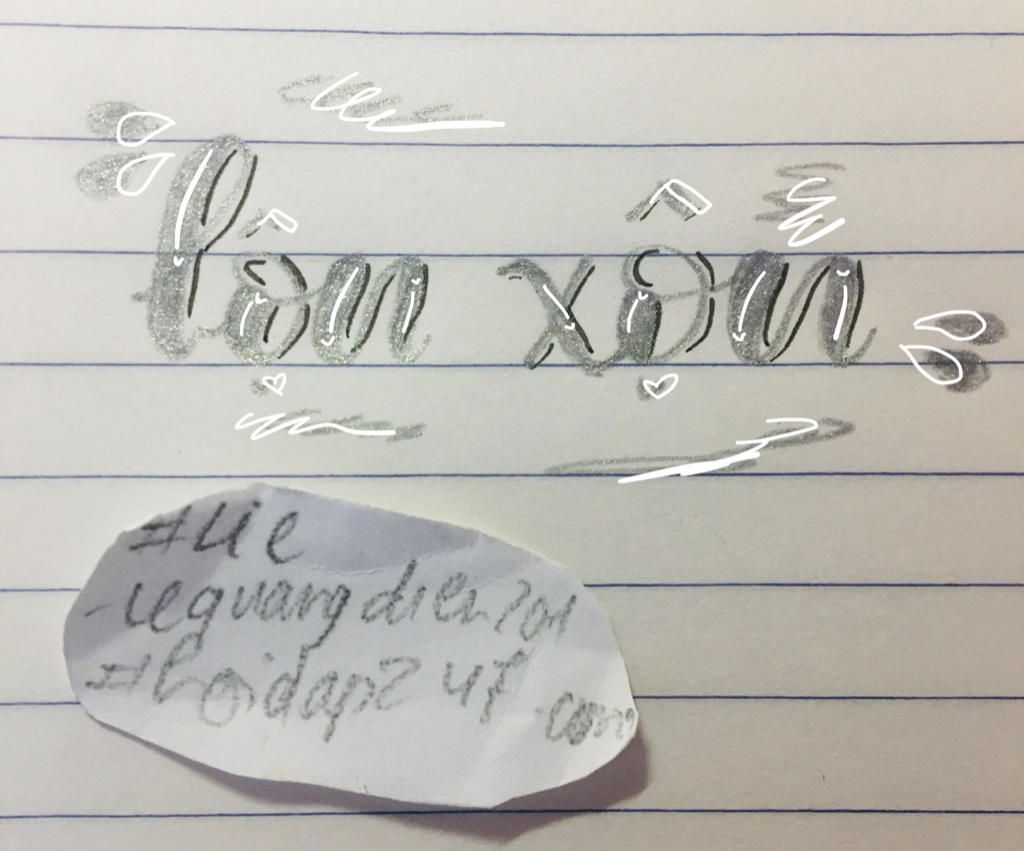 lộn xộn
#Lie
-lequangdien201
#hoidap247.com